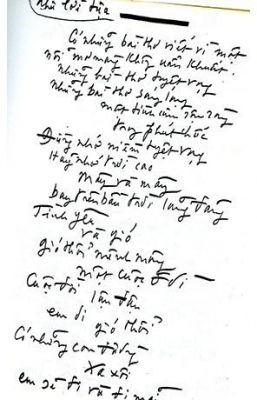 như lời tựa
Có những bài thơ viết vì một
nỗi mơ màng không uẩn khuất
những bài thơ tuyệt vọng
những bài thơ sáng láng
một bình minh
trong phút chốc
Đừng nhớ niềm tuyệt vọng
Hãy nhớ trời cao
Mây và mây
bay trên bầu trời lồng lộng
Tình yêu
và gió
gió thổi mênh mông
một cuộc ở đi
Cuộc đời lận đận
em đi gió thổi
Có những con đường
xa xôi
em sẽ đi và đi mãi